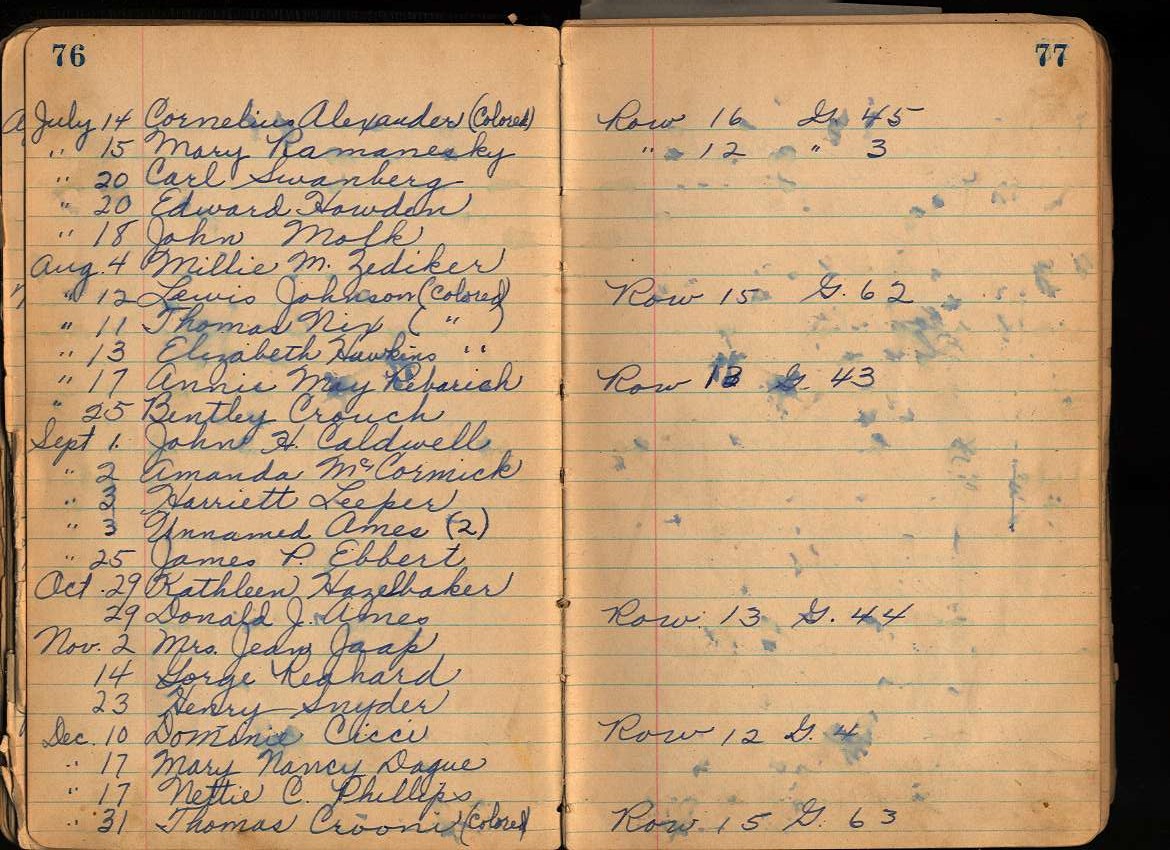 76
77
July 14 Cornelius Alexander (Colored) Row 16 G. 45
" 15 Mary Ramanesky " 12 " 3
" 20 Carl Swanberg
" 20 Edward Howden
" 18 John Molk
Aug. 4 Millie M. Zediker
" 12 Lewis Johnson (Colored) Row 15 G. 62
" 11 Thomas Nix ( " )
" 13 Elizabeth Hawkins "
" 17 Annie May Rebarich Row 13 G. 43
" 25 Bentley Crouch
Sept 1. John H. Caldwell
" 2 Amanda McCormick
" 3 Harriett Leeper
" 3 Unnamed Ames (2)
" 25 James P. Ebbert
Oct. 29 Kathleen Hazelbaker
29 Donald J. Ames Row. 13 G. 44
Nov. 2 Mrs. Jean Jaap
14 Gorge Reghard
23 Henry Snyder
Dec. 10 Dominic Cicci Row 12 G. 4
" 17 Mary Nancy Dague
" 17 Nettie C. Phillips
" 31 Thomas (Colored) Row 15 G. 63